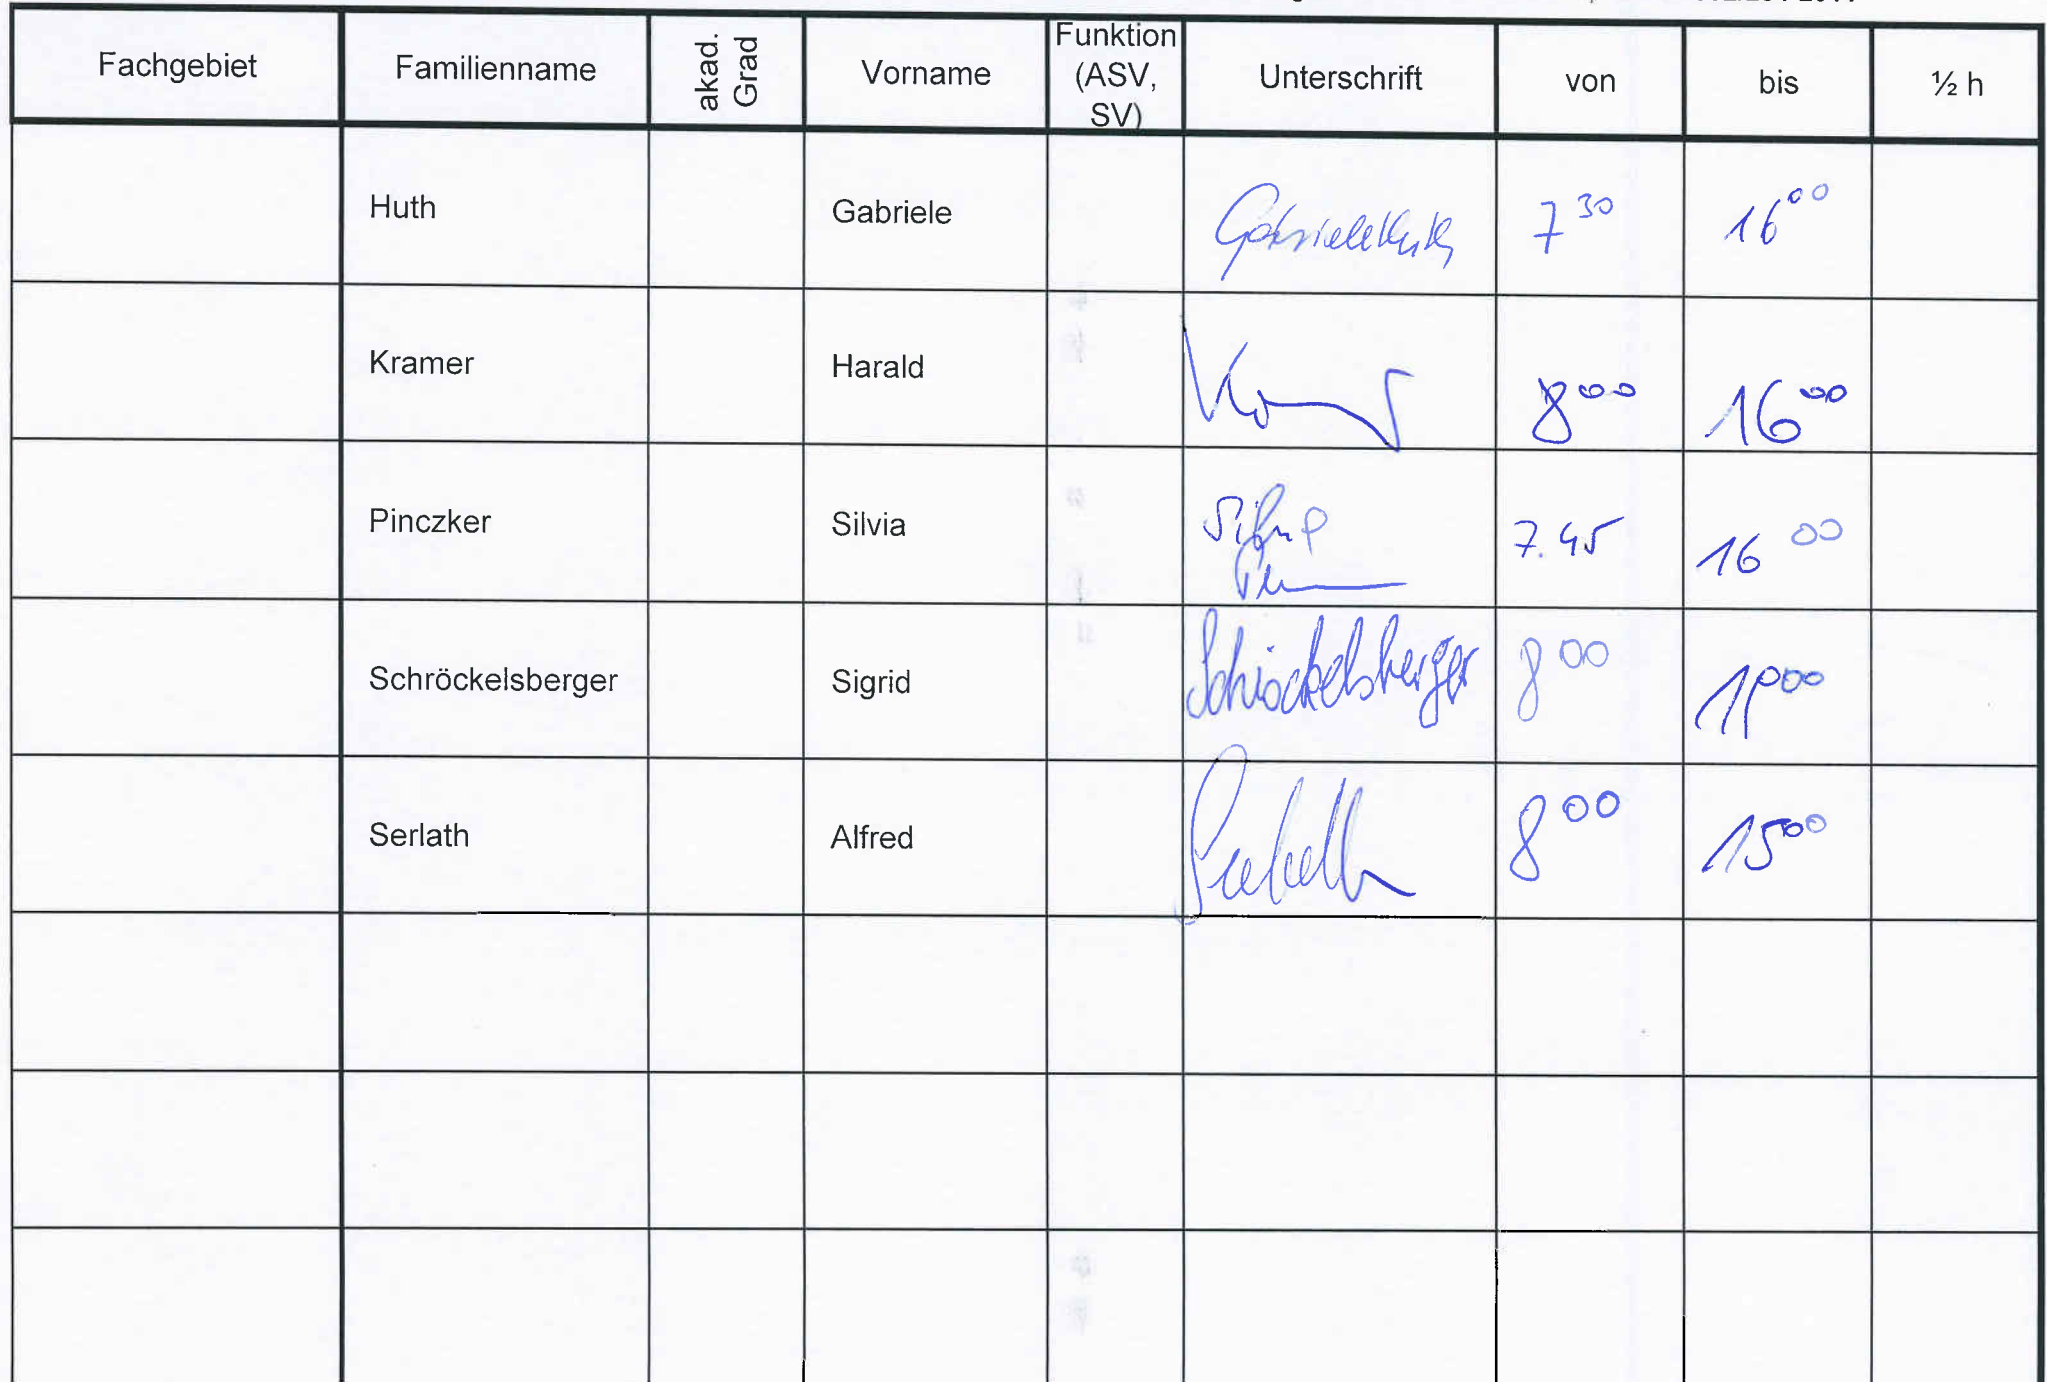 Fachgebiet Familienname akad. Grad Vorname Funktion (ASV, SV) Unterschrift von bis ½ h
Huth Gabriele Gabriele Huth 7 30 16 00
Kramer Harald 8 00 16 00
Pinczker Silvia 7.45 16 00
Schröckelsberger Sigrid Schröckelsberger 8 00 00
Serlath Alfred 8 00 15 00